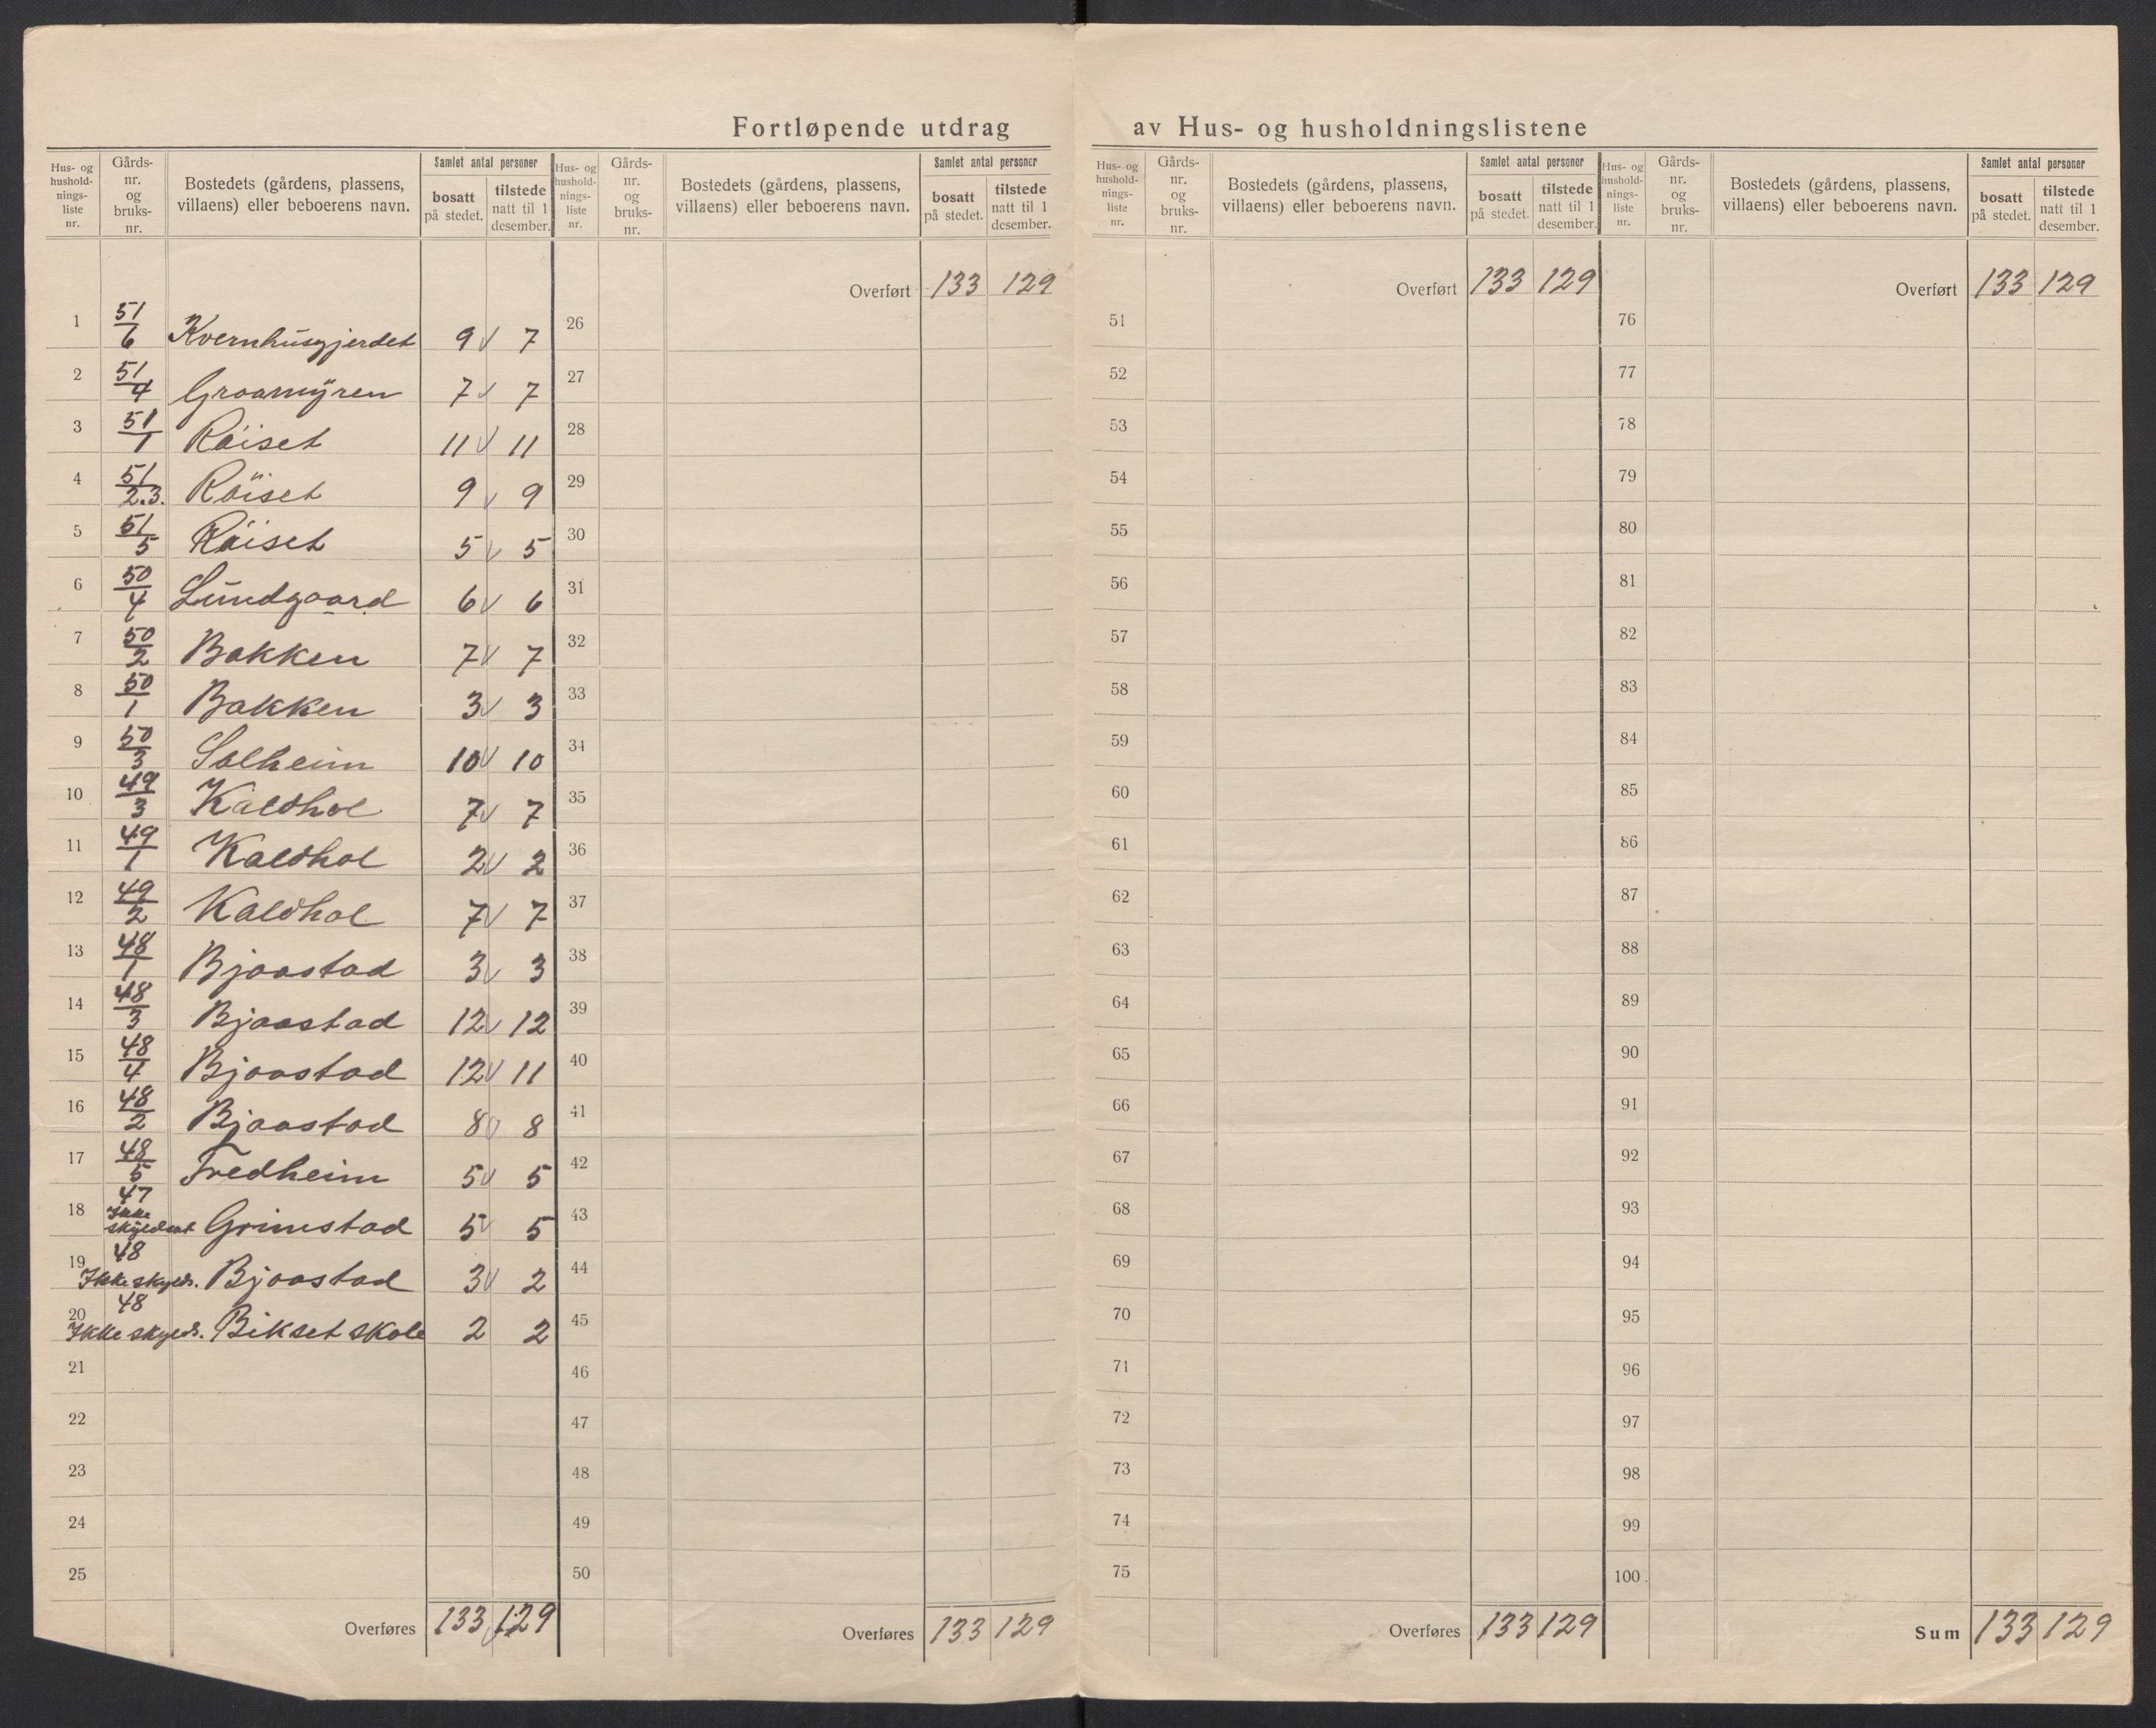 Fortløpende utdrag av Hus- og husholdningslistene
Hus- og hushold-nings-liste nr. | Gårds-nr. og bruks-nr. | Bostedets (gårdens, plassens, villaens) eller beboerens navn. | Samlet antal personer | bosatt på stedet. | tilstede natt til 1 desember.
1 51/6 Kvernhusgjerdet 9 v 7
2 51/4 Graamyren 7 v 7
3 51/1 Röiset 11 v 11
4 51/2.3. Röiset 9 v 9
5 51/5 Röiset 5 v 5
6 50/4 Lundgaard 6 v 6
7 50/2 Bakken 7 v 7
8 50/1 Bakken 3 v 3
9 50/3 Solheim 10 v 10
10 49/3 Kaldhol 7 v 7
11 49/1 Kaldhol 2 v 2
12 49/2 Kaldhol 7 v 7
13 48/1 Bjaastad 3 v 3
14 48/3 Bjaastad 12 v 12
15 48/4 Bjaastad 12 v 11
16 48/2 Bjaastad 8 v 8
17 48/5 Fredheim 5 v 5
18 47 Ikke skyldsat Grimstad 5 v 5
19 48 Ikke skylds. Bjaastad 3 v 2
20 48 Ikke skylds. Bikset skole 2 2
21
22
23
24
25
Overføres 133 129
Hus- og hushold-nings-liste nr. | Gårds-nr. og bruks-nr. | Bostedets (gårdens, plassens, villaens) eller beboerens navn. | Samlet antal personer | bosatt på stedet. | tilstede natt til 1 desember.
Overført 133 129
26
27
28
29
30
31
32
33
34
35
36
37
38
39
40
41
42
43
44
45
46
47
48
49
50
Overføres 133 129
Hus- og hushold-nings-liste nr. | Gårds-nr. og bruks-nr. | Bostedets (gårdens, plassens, villaens) eller beboerens navn. | Samlet antal personer | bosatt på stedet. | tilstede natt til 1 desember.
Overført 133 129
51
52
53
54
55
56
57
58
59
60
61
62
63
64
65
66
67
68
69
70
71
72
73
74
75
Overføres 133 129
Hus- og hushold-nings-liste nr. | Gårds-nr. og bruks-nr. | Bostedets (gårdens, plassens, villaens) eller beboerens navn. | Samlet antal personer | bosatt på stedet. | tilstede natt til 1 desember.
Overført 133 129
76
77
78
79
80
81
82
83
84
85
86
87
88
89
90
91
92
93
94
95
96
97
98
99
100
Sum 133 129